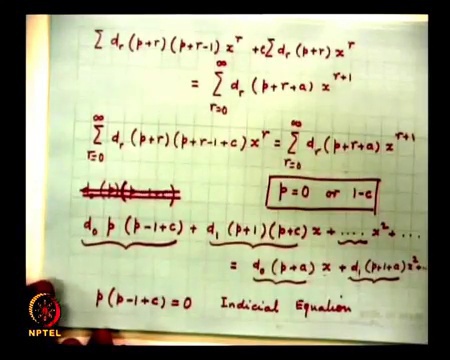 Σ d_r (p+r)(p+r-1) x^r + c Σ d_r (p+r) x^r
= Σ_{r=0}^{∞} d_r (p+r+a) x^{r+1}
Σ_{r=0}^{∞} d_r (p+r)(p+r-1+c) x^r = Σ_{r=0}^{∞} d_r (p+r+a) x^{r+1}
p=0 or 1-c
d_0 p (p-1+c) + d_1 (p+1)(p+c) x + .... x^2 + ...
= d_0 (p+a) x + d_1 (p+1+a) x^2 ...
p(p-1+c) = 0 Indicial Equation
NPTEL